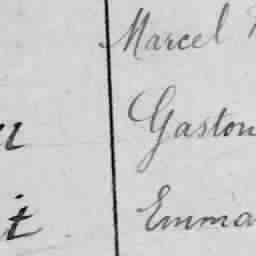 Marcel
Gaston
Emma